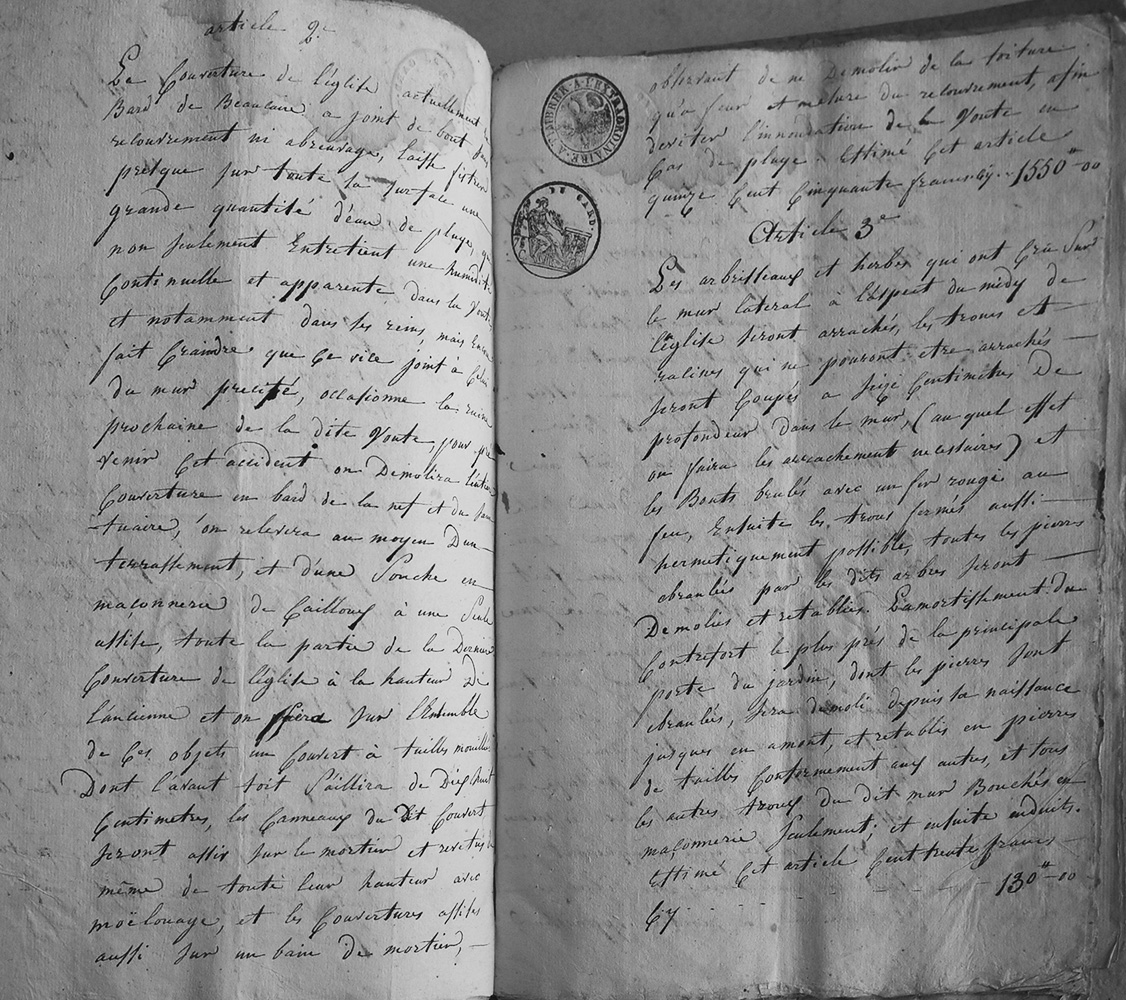 article 2e
La Couverture de l'église actuellement en
Bard de Beaucaire a joint de bout sans
recouvrement ni abreuvage, laisse filtrer
presque sur toute sa surface une
grande quantité d'eau de pluye, qui
non seulement Entretient une humidité
Continuelle et apparente dans la Voute
et notamment dans ses reins, mais Encore
fait Craindre que Ce vice joint à Celui
du mur precité, occasionne la ruine
prochaine de la dite Voute, pour pre
venir Cet accident on Demolira l'entiere
Couverture en bard de la nef et du sanc
tuaire, on relevera au moyen D'un
terrassement, et d'une Souche en
maçonnerie de Cailloux à une Seule
assise, toute la partie de la Derniere
Couverture de l'église à la hauteur De
l'ancienne et on fera sur l'Ensemble
de Ces objets un Couvert à tuilles mouillées
Dont l'avant toit Saillira de Dix huit
Centimetres, les Canneaux du Dit Couvert
seront assis sur le mortier et revetus de
même de toute leur hauteur avec
moëlonage, et les Couvertures assises
aussi sur un bain de mortier,
A TIMBRER A L'EXTRAORDINAIRE
DU GARD.
observant de ne Demolir de la toiture
qu'a feur et mesure du recouvrement, afin
d'eviter l'innondation de la Voute en
Cas de pluye. Estimé Cet article
quinze Cent Cinquante francs cy.. 1550"-00
Article 3e
Les arbrisseaux et herbes qui ont Cru Sur
le mur lateral à l'aspect du midy de
l'église seront arrachés, les troncs et
racines qui ne pouront etre arrachés
seront Coupés a seize Centimètres De
profondeur dans le mur, (au quel effet
on faira les arrachements necessaires) et
les Bouts brulés avec un fer rougi au
feu, Ensuite les trous fermés aussi
hermetiquement possible, toutes les pierres
ebranlées par les dits arbres seront
Demolies et retablies. L'amortissement du
Contrefort le plus près de la principale
porte du jardin, dont les pierres sont
ebranlées, sera demoli depuis sa naissance
jusques en amont, et retablis en pierres
de tailles Conformement aux autres, et tous
les autres troux du dit mur Bouchés en
maçonnerie seulement; et ensuite enduits.
Estimé Cet article Cent trente francs
Cy - - - - 130"-00